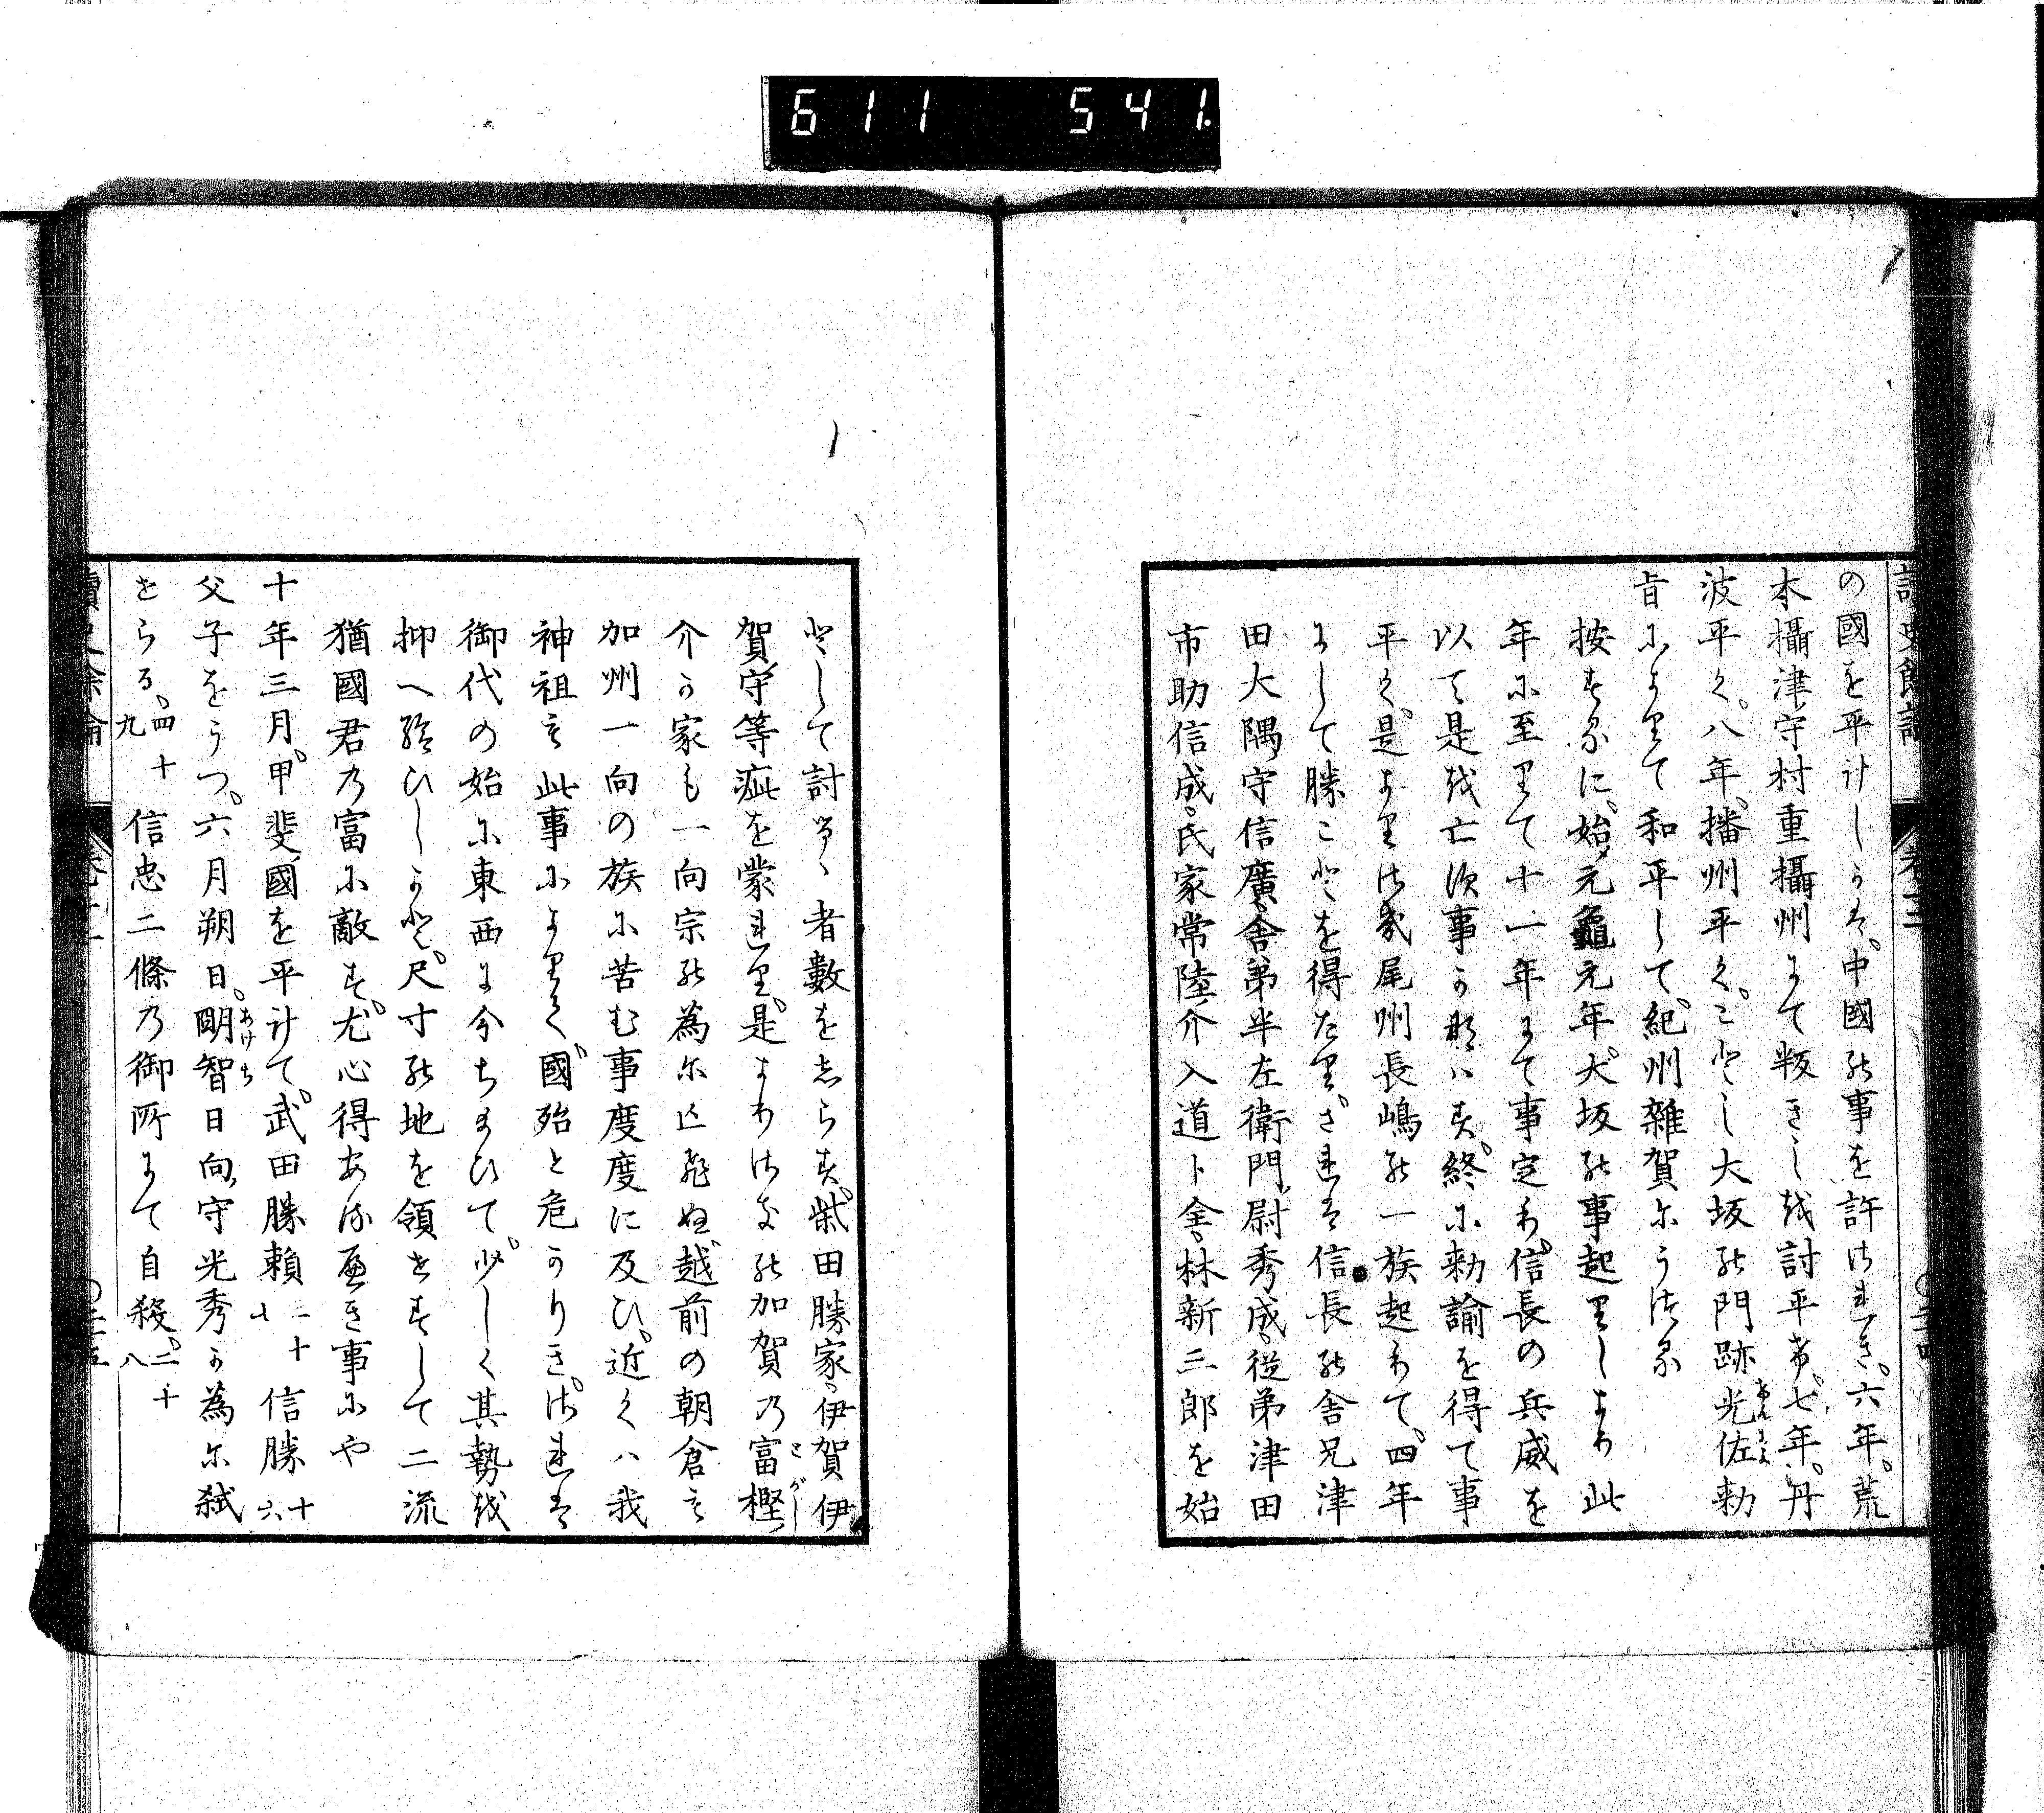 611 541.
讀史餘論 卷三 〇三四
の國を平けしかは、中國の事を許されき。六年。荒
木攝津守村重攝州にて叛きしを討平く。七年。丹
波平く。八年。播州平く。ことし大坂の門跡光佐勅
旨によりて和平して。紀州雜賀にうつる
按するに。始元龜元年。大坂の事起りしより此
年に至りて十一年にて事定り。信長の兵威を
以て是を亡す事かなはす。終に勅諭を得て事
平く。是よりさき尾州長嶋の一族起りて。四年
にして勝ことを得たり。されは信長の舍兄津
田大隅守信廣、舍弟半左衛門尉秀成、從弟津田
市助信成、氏家常陸介入道卜全、林新三郎を始
として討るゝ者數をしらす。柴田勝家、伊賀伊
賀守等疵を蒙れり。是よりさきの加賀乃富樫
とがし
介か家も一向宗の為に亡ひぬ。越前の朝倉も
加州一向の族に苦む事度度に及ひ。近くハ我
神祖も此事によりて。國殆と危かりき。されは
御代の始に東西に分ちまひて。少しく其勢を
抑へ給ひしかと。尺寸の地を領せすして二流
猶國君乃富に敵す。尤心得あるへき事にや
十年三月。甲斐國を平けて。武田勝賴二十七信勝十六
父子をうつ。六月朔日。明智日向守光秀か為に弑
あけち
せらる。四十九信忠二條乃御所にて自殺。二十八
讀史餘論 〇三五